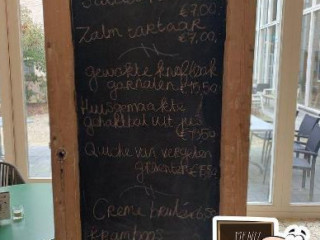 €7,00
Zalm tartaar
€7,00
gewokte knoflook
garnalen
Huisgemaakte
gehaktbal uit jus
€7,50
Quiche van vergeten
groenten
Creme brulée
Framboos
MENU